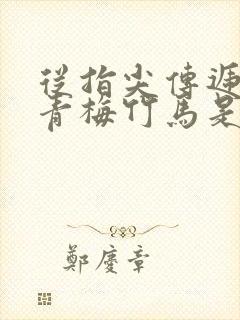 從指尖傳遞
青梅竹馬是
鄭慶章